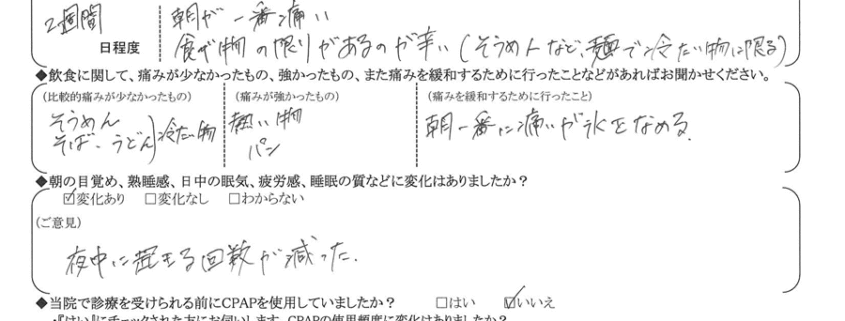 2週間
日程度
朝が一番痛い
食べ物の限りがあるのが辛い(そうめんなど、麺で冷たい物に限る)
◆飲食に関して、痛みが少なかったもの、強かったもの、また痛みを緩和するために行ったことなどがあればお聞かせください。
(比較的痛みが少なかったもの)
そうめん
そば、うどん)冷たい物
(痛みが強かったもの)
熱い物
パン
(痛みを緩和するために行ったこと)
朝一番に痛いが氷をなめる。
◆朝の目覚め、熟睡感、日中の眠気、疲労感、睡眠の質などに変化はありましたか?
☑変化あり □変化なし □わからない
(ご意見)
夜中に起きる回数が減った.
◆当院で診療を受けられる前にCPAPを使用していましたか? □はい ☑いいえ
・『はい』にチェックされた方にお伺いします。CPAPの使用頻度に変化はありましたか?